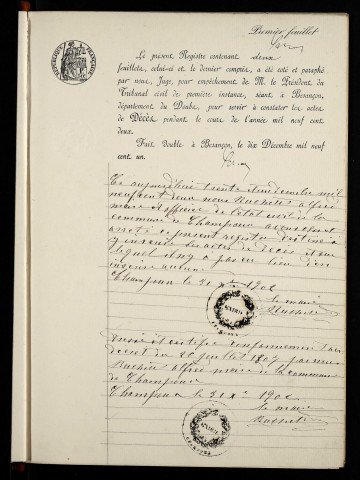 Premier feuillet
RÉPUBLIQUE FRANÇAISE
Le présent Registre contenant deux
feuillets, celui-ci et le dernier compris, a été coté et paraphé
par nous, Juge, pour empêchement de M. le Président du
Tribunal civil de première instance, séant à Besançon,
département du Doubs, pour servir à constater les actes
de Décès pendant le cours de l'année mil neuf cent
deux.
Fait double à Besançon, le dix Décembre mil neuf
cent un.
Ce aujourd'hui trente et un décembre mil
neuf cent deux nous Ruchité Alfred
maire et officier de l'état civil de la
commune de Champoux avons clos et
arrêté le présent registre destiné à
y inscrire les actes de décès et sur
lequel il n'y a pas eu lieu d'en
inscrire aucun
Champoux le 31 Xe 1902
le maire
MAIRIE
dressé et certifié conformément au
décret du 20 juillet 1807 par nous
alfred maire de la commune
de Champoux
Champoux le 31 Xe 1902
le maire
MAIRIE